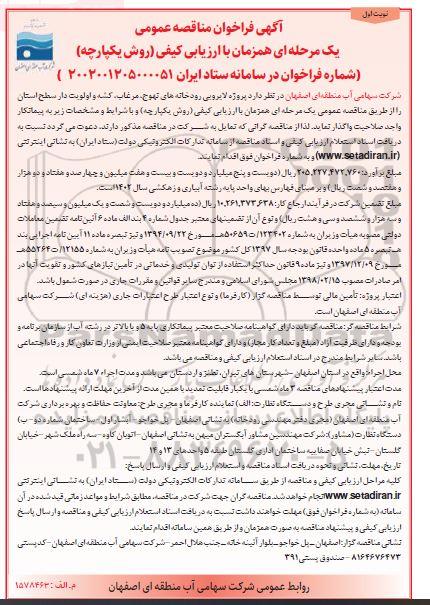 نوبت اول
آگهی فراخوان مناقصه عمومی
یک مرحله ای همزمان با ارزیابی کیفی (روش یکپارچه)
(شماره فراخوان در سامانه ستاد ایران ۲۰۰۲۰۰۱۲۰۵۰۰۰۰۵۱ )
شرکت سهامی آب منطقه‌ای اصفهان در نظر دارد پروژه لایروبی رودخانه های تهوج، مرغاب، کشه و اولویت دار سطح استان
را از طریق مناقصه عمومی یک مرحله ای همزمان با ارزیابی کیفی (روش یکپارچه) و با شرایط و مشخصات زیر به پیمانکار
واجد صلاحیت واگذار نماید. لذا از مناقصه گرانی که تمایل به شرکت در مناقصه مذکور دارند، دعوت می گردد نسبت به
دریافت اسناد استعلام ارزیابی کیفی و اسناد مناقصه از سامانه تدارکات الکترونیکی دولت (ستاد ایران) به نشانی اینترنتی
(www.setadiran.ir) و به شماره فراخوان فوق اقدام نمایند.
مبلغ برآورد: ۲۰۵,۲۲۷,۴۷۲,۷۶۰ ریال (دویست و پنج میلیارد و دویست و بیست و هفت میلیون و چهارصد و هفتاد و دو هزار
و هفتصد و شصت ریال) و بر مبنای فهارس بهای واحد پایه رشته آبیاری و زهکشی سال ۱۴۰۲ است.
مبلغ تضمین شرکت در فرآیند ارجاع کار: ۱۰,۲۶۱,۳۷۳,۶۳۸ ریال (ده میلیارد و دویست و شصت و یک میلیون و سیصد و هفتاد
و سه هزار و ششصد و سی و هشت ریال) و نوع آن از تضمینهای معتبر جدول شماره ۴ بند الف ماده ۶ آئین نامه تضمین معاملات
دولتی مصوبه هیأت وزیران به شماره ۱۲۳۴۰۲/ت۵۰۶۵۹هـ مورخ ۱۳۹۴/۰۹/۲۲ و نیز تبصره ماده ۱۱ آیین نامه اجرایی بند
هـ تبصره ۵ ماده واحده قانون بودجه سال ۱۳۹۷ کل کشور موضوع تصویب نامه هیأت وزیران به شماره ۱۲۱۵۵/ت۵۵۲۶۴هـ
مورخ ۱۳۹۷/۱۲/۰۹ و نیز ماده ۹ قانون حداکثر استفاده از توان تولیدی و خدماتی در تأمین نیازهای کشور و تقویت آنها در
امر صادرات مصوب ۱۳۹۸/۰۲/۱۵ مجلس شورای اسلامی و مندرج سایر قوانین و مقررات جاری در صورت شمول باشد.
اعتبار پروژه: تأمین مالی توسط مناقصه گزار (کارفرما) و نوع اعتبار طرح اعتبارات جاری (هزینه ای) شرکت سهامی
آب منطقه ای اصفهان است.
شرایط مناقصه گر: مناقصه گر باید دارای گواهینامه صلاحیت معتبر پیمانکاری پایه ۵ و یا بالاتر در رشته آب از سازمان برنامه و
بودجه و دارای ظرفیت آزاد (مبلغ و تعداد کار مجاز) و دارای گواهینامه معتبر صلاحیت ایمنی از وزارت تعاون کار و رفاه اجتماعی
باشد. سایر شرایط مندرج در اسناد استعلام ارزیابی کیفی و مناقصه می باشد.
محل اجرا: واقع در استان اصفهان - شهرستان های تیران، نطنز و اردستان می باشد و مدت اجراء ۷ ماه شمسی است.
مدت اعتبار پیشنهادهای مناقصه ۳ ماه شمسی با یکبار قابلیت تمدید با همین مدت از آخرین مهلت ارائه پیشنهادها است.
نام و نشانی مجری طرح و دستگاه نظارت: الف) نماینده کارفرما و مجری طرح: معاونت حفاظت و بهره برداری شرکت
آب منطقه ای اصفهان (مجری دفتر مهندسی رودخانه) به نشانی اصفهان - پل خواجو - آبشار اول - ساختمان شماره دو - ب)
دستگاه نظارت (مشاور): شرکت مهندسین مشاور آبگستران میهن به نشانی اصفهان - اتوبان کاوه - سه راه ملک شهر - خیابان
گلستان - نبش خیابان صفاییه ساختمان اداری گلستان طبقه ۵ واحدهای ۱۳ و ۱۴
تاریخ، مهلت، نشانی و نحوه دریافت اسناد مناقصه و استعلام ارزیابی کیفی و ارسال پاسخ:
کلیه مراحل ارزیابی کیفی و مناقصه از طریق سامانه تدارکات الکترونیکی دولت (ستاد ایران) به نشانی اینترنتی
www.setadiran.ir انجام خواهد شد. مناقصه گران جهت شرکت در مناقصه، مطابق شرایط و مواعد زمانی قید شده در آن
سامانه (به شماره فراخوان فوق) مهلت خواهند داشت نسبت به دریافت اسناد استعلام ارزیابی کیفی و مناقصه و ارسال پاسخ
ارزیابی کیفی و پیشنهاد مناقصه به صورت همزمان و از طریق همین سامانه اقدام نمایند.
نشانی مناقصه گزار: اصفهان - پل خواجو - بلوار آئینه خانه - جنب هلال احمر - شرکت سهامی آب منطقه ای اصفهان - کدپستی
۸۱۶۴۶۷۶۴۷۳ - صندوق پستی ۳۹۱
روابط عمومی شرکت سهامی آب منطقه ای اصفهان
م.الف: ۱۵۷۸۴۶۳